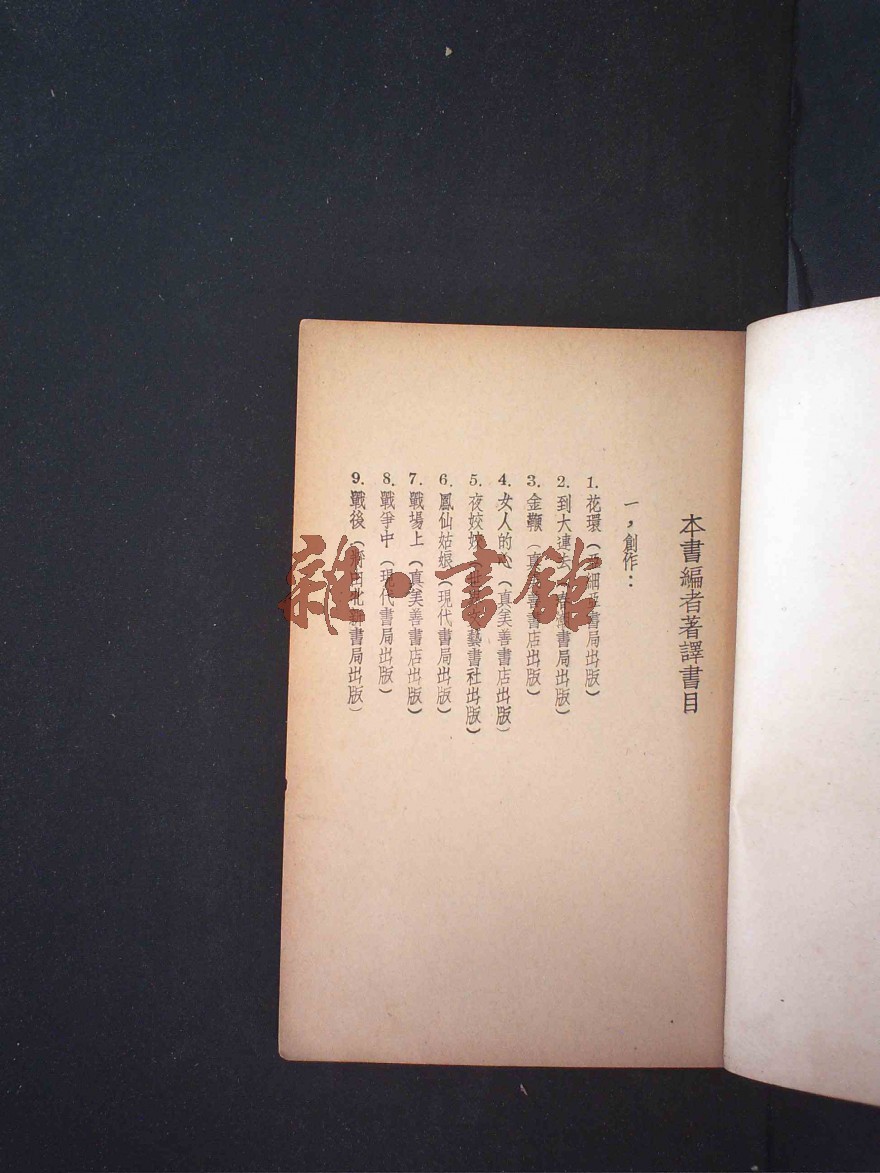 本書編者著譯書目
一，創作：
1. 花環（亞細亞書局出版）
2. 到大連去（書局出版）
3. 金鞭（真美善書店出版）
4. 女人的心（真美善書店出版）
5. 夜姣姣（藝書社出版）
6. 鳳仙姑娘（現代書局出版）
7. 戰場上（真美善書店出版）
8. 戰爭中（現代書局出版）
9. 戰後（北新書局出版）
雜·書館